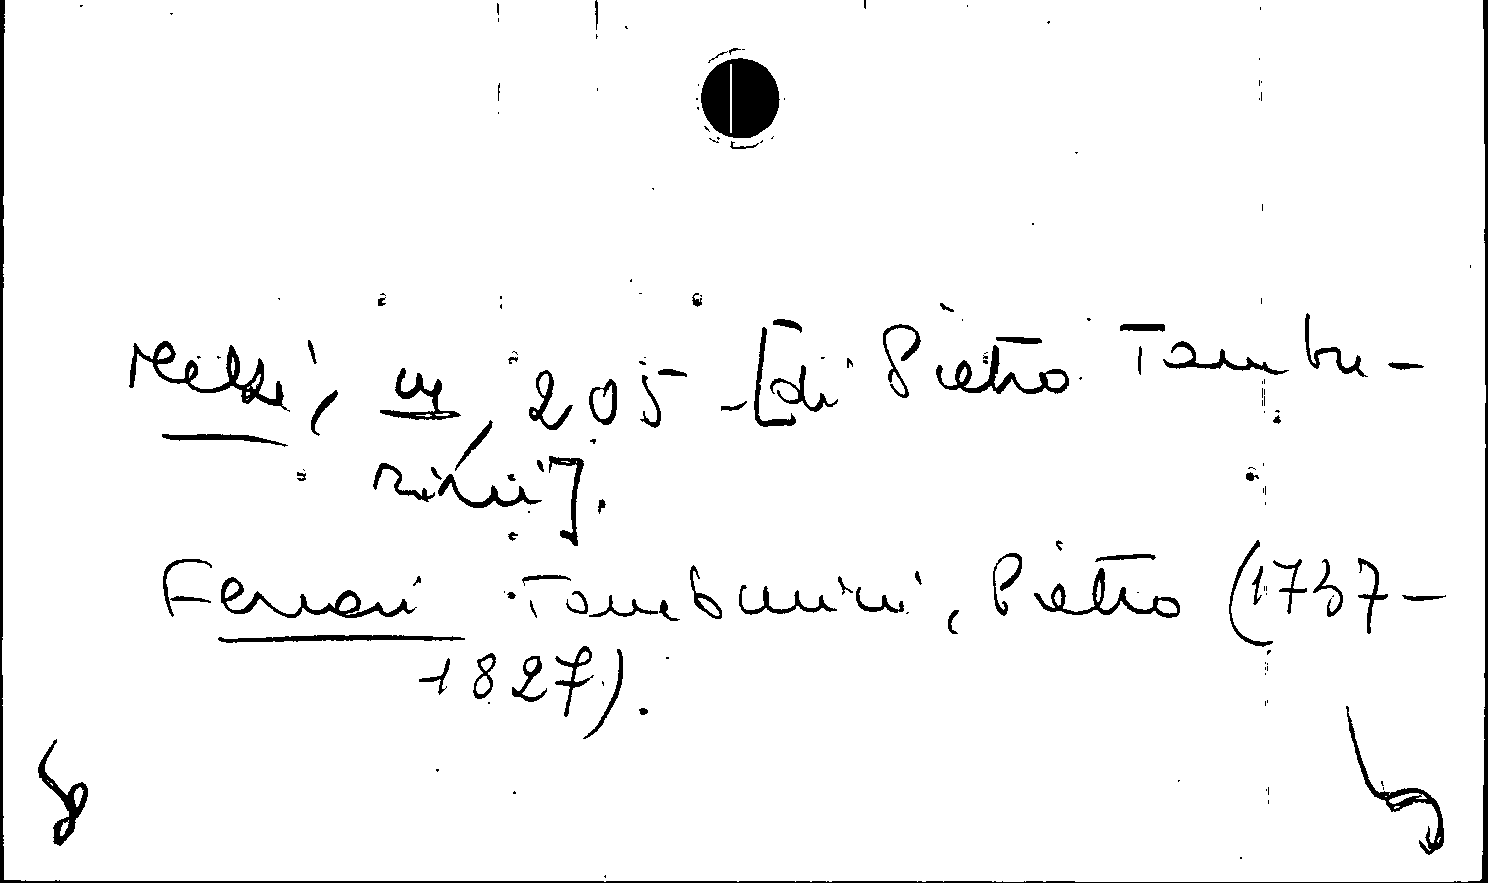 Melzi, III, 205 - [di Pietro Tambu-
rini].
Ferrari Tamburini, Pietro (1737-
-1827).